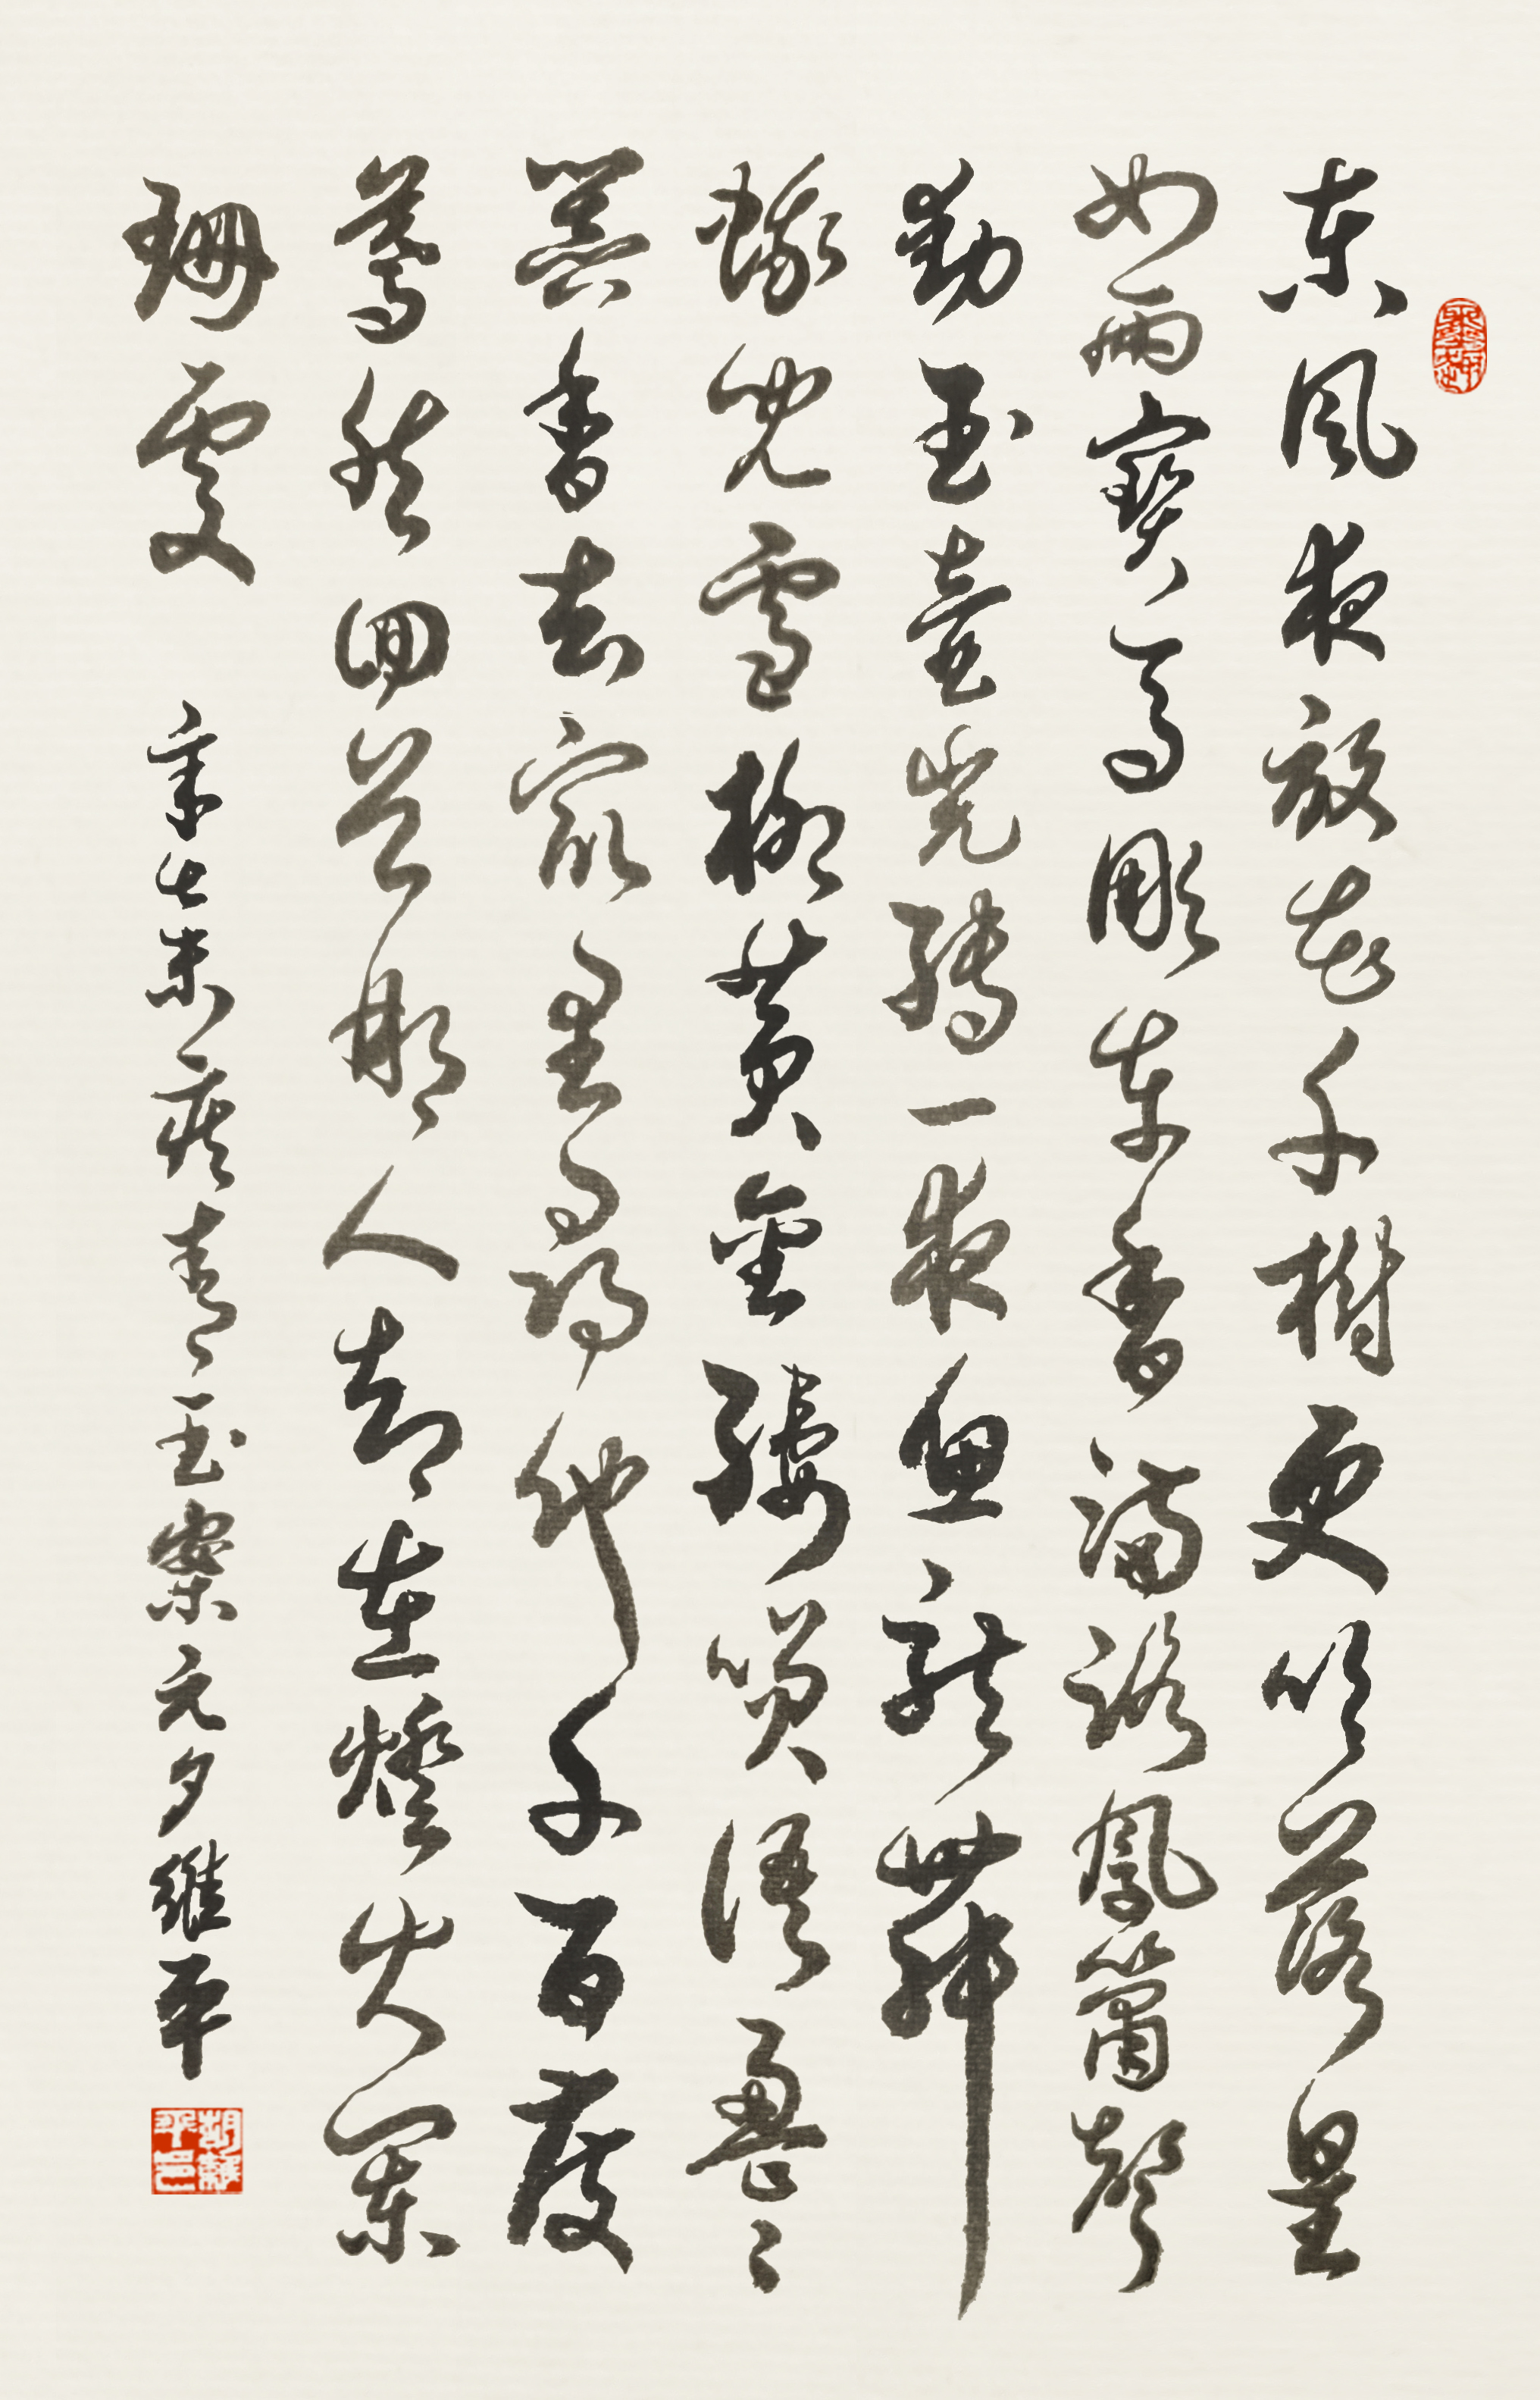 東風夜放花千樹更吹落星
如雨寶馬雕車香滿路鳳簫聲
動玉壺光轉一夜魚龍舞
蛾兒雪柳黃金縷笑語盈々
暗香去眾裏尋他千百度
驀然回首那人卻在燈火闌
珊處 辛棄疾青玉案元夕維平
胡維平印